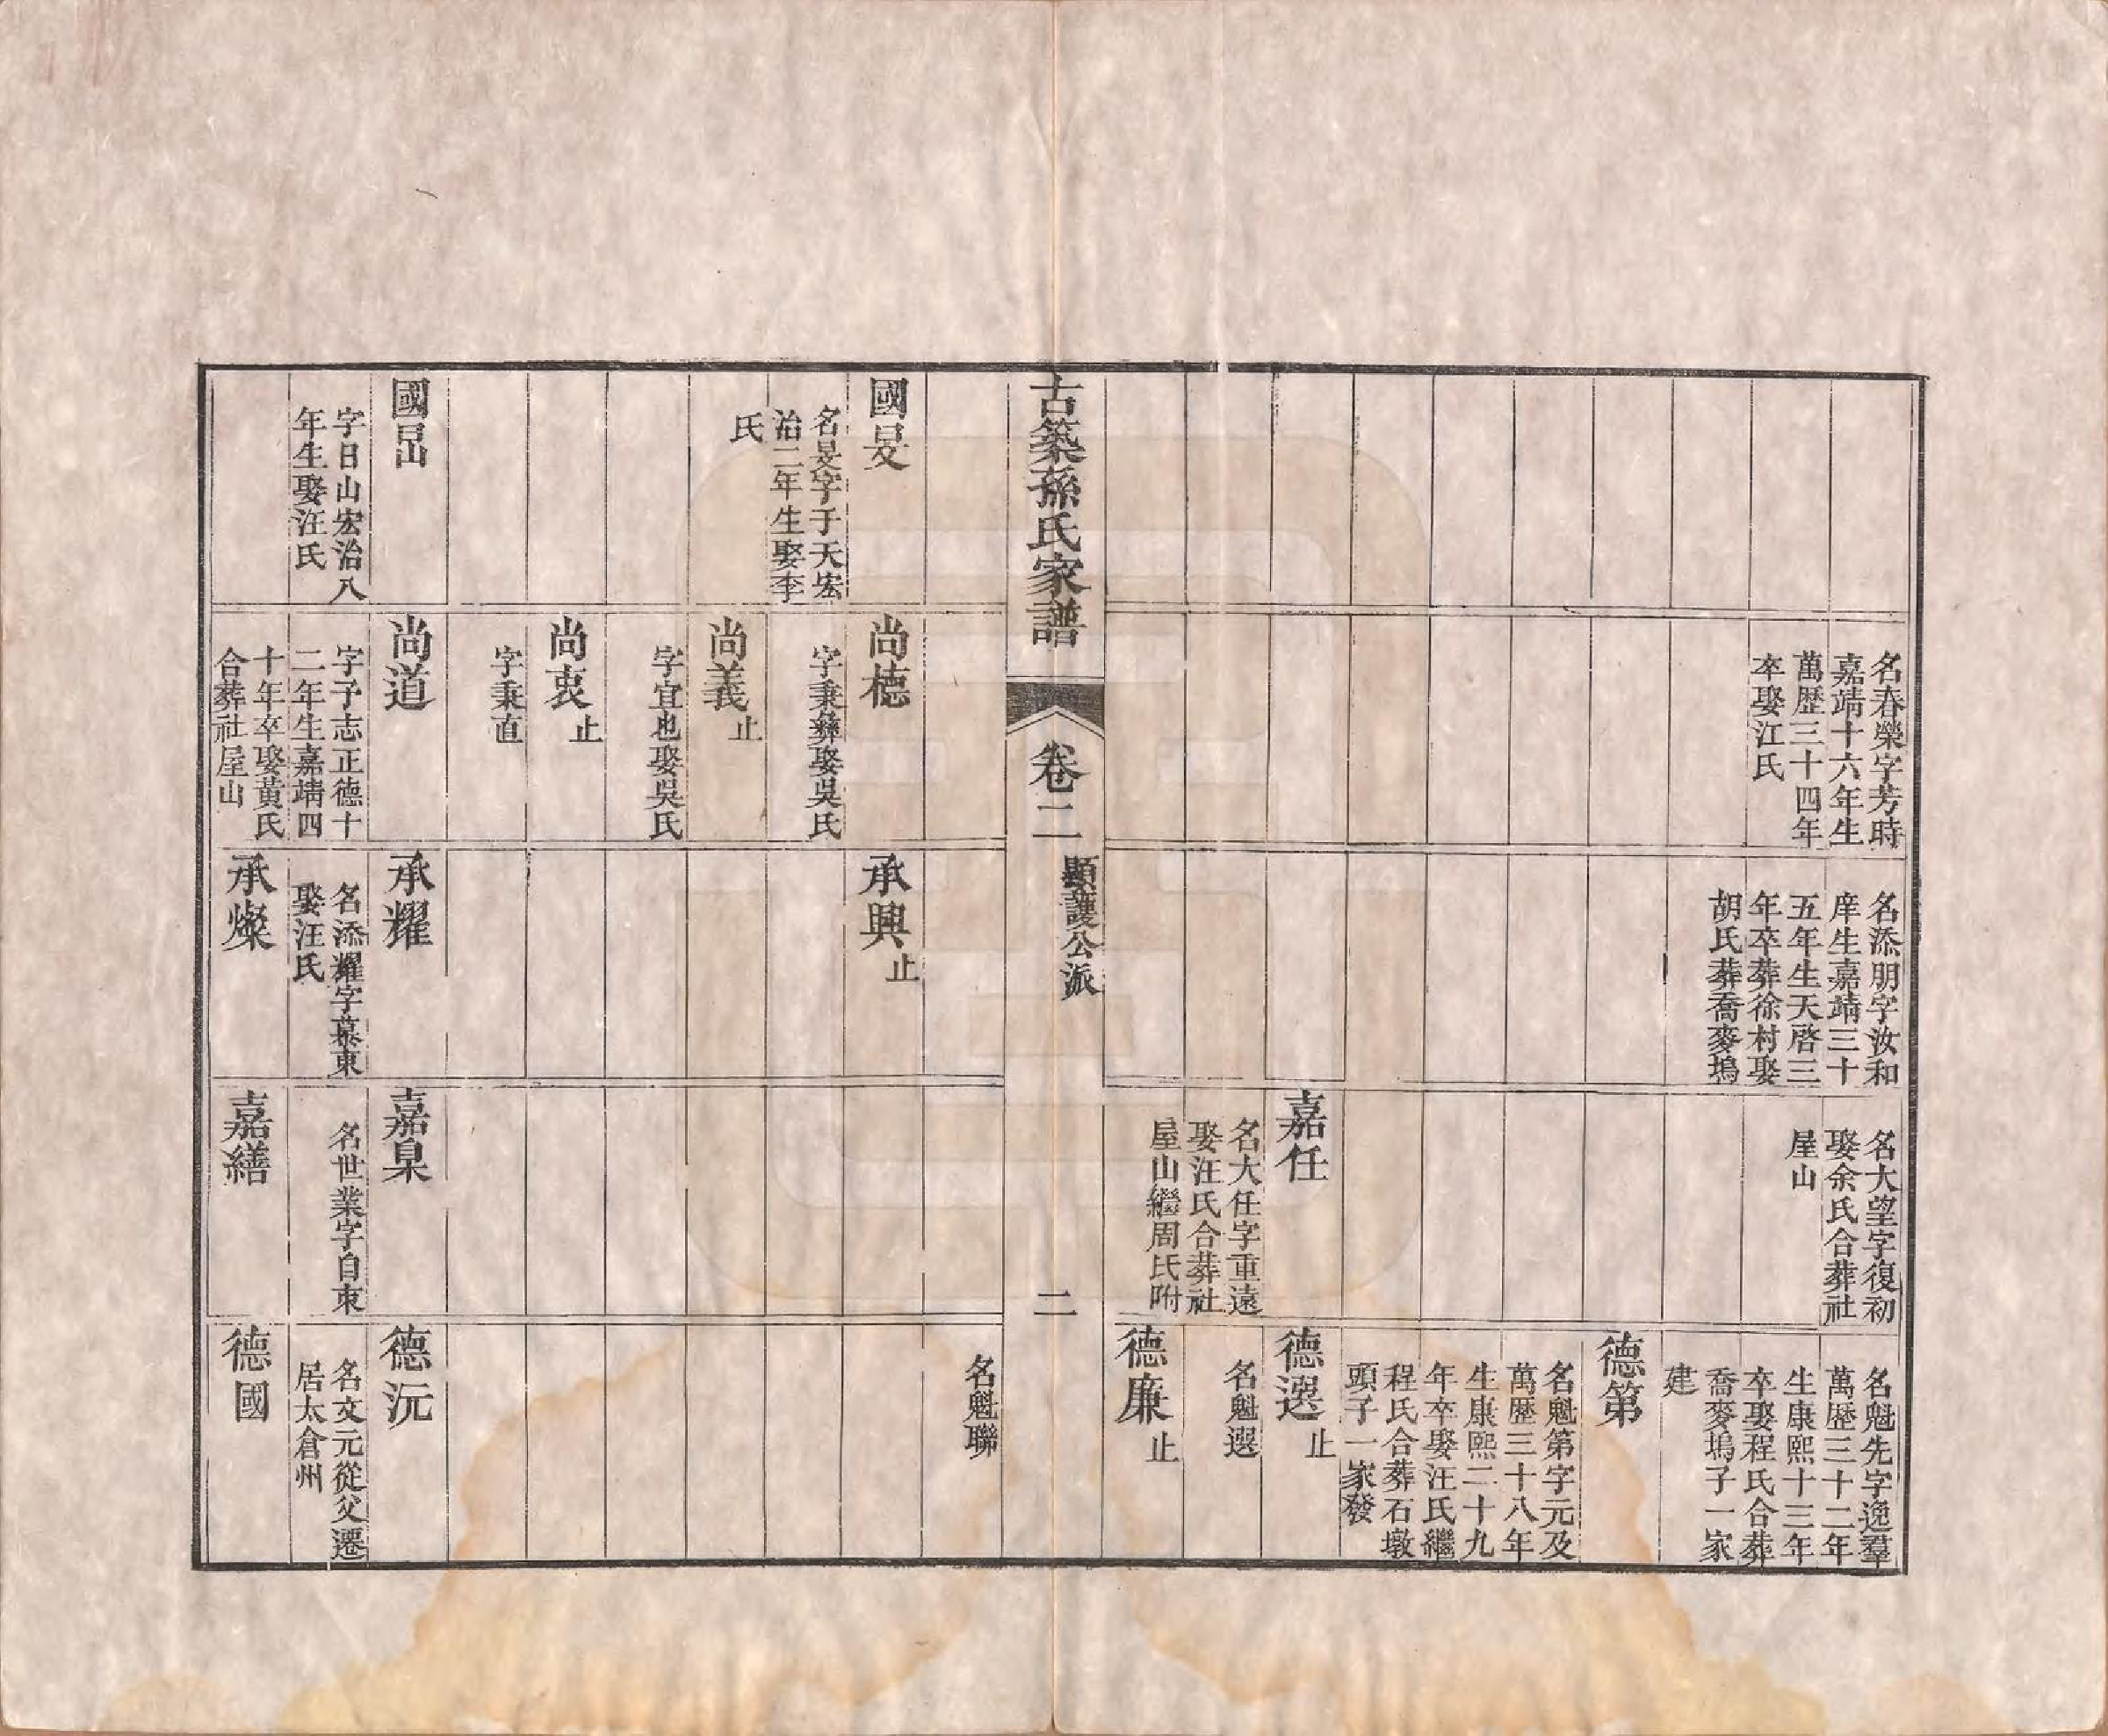 名春榮字芳時
嘉靖十六年生
萬歷三十四年
卒娶江氏
名添朋字汝和
庠生嘉靖三十
五年生天啓三
年卒葬徐村娶
胡氏葬喬麥塢
名大望字復初
娶余氏合葬社
屋山
嘉任
名大任字重遠
娶汪氏合葬社
屋山繼周氏附
名魁先字逸羣
萬歷三十二年
生康熙十三年
卒娶程氏合葬
喬麥塢子一家
建
德第
名魁第字元及
萬歷三十八年
生康熙二十九
年卒娶汪氏繼
程氏合葬石墩
頭子一家發
德選 止
名魁選
德廉 止
古築孫氏家譜
卷二
顯護公派
二
國旻
名旻字于天宏
治二年生娶李
氏
國
字日山宏治八
年生娶汪氏
尚德
字秉彝娶吳氏
尚義 止
字宜也娶吳氏
尚衷 止
字秉直
尚道
字子志正德十
二年生嘉靖四
十年卒娶黃氏
合葬社屋山
承興 止
承耀
名添耀字慕東
娶汪氏
承燦
嘉臬
名世業字自東
嘉繕
名魁聯
德沅
名文元從父遷
居太倉州
德國